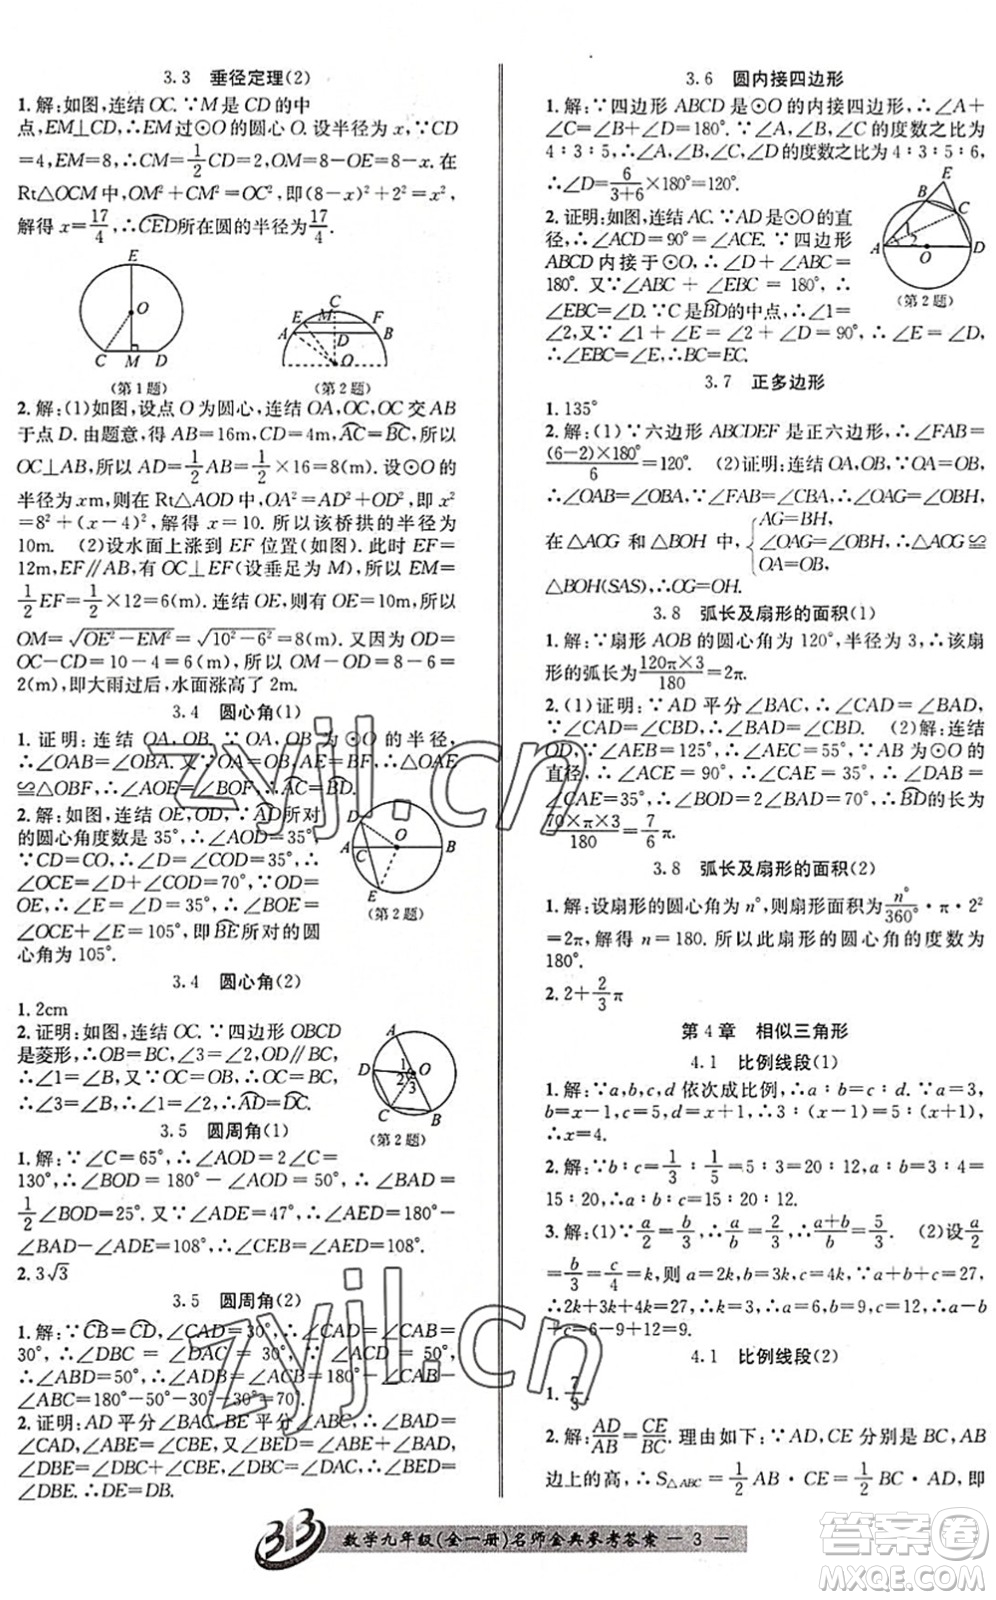 3.3 垂径定理(2)
1.解:如图,连结OC.∵M是CD的中
点,EM⊥CD,∴EM过⊙O的圆心O.设半径为x,∵CD
=4,EM=8,∴CM=1/2CD=2,OM=8-OE=8-x.在
Rt△OCM中,OM²+CM²=OC²,即(8-x)²+2²=x²,
解得x=17/4,∴CED所在的圆的半径为17/4.
E
O
C M D
(第1题)
C
E M F
A D B
O
(第2题)
2.解:(1)如图,设点O为圆心,连结OA,OC,OC交AB
于点D.由题意,得AB=16m,CD=4m,AC=BC,所以
OC⊥AB,所以AD=1/2AB=1/2×16=8(m).设⊙O的
半径为xm,则在Rt△AOD中,OA²=AD²+OD²,即x²
=8²+(x-4)²,解得x=10.所以该桥拱的半径为
10m. (2)设水面上涨到EF位置(如图).此时EF=
12m,EF∥AB,有OC⊥EF(设垂足为M),所以EM=
1/2EF=1/2×12=6(m).连结OE,则有OE=10m.所以
OM=√OE²-EM²=√10²-6²=8(m).又因为OD=
OC-CD=10-4=6(m),所以OM-OD=8-6=2
(m),即大雨过后,水面涨高了2m.
3.4 圆心角(1)
1.证明:连结OA,OB.∵OA,OB为⊙O的半径,
∴∠OAB=∠OBA.又∵OA=OB,AE=BF,∴△OAE
≌△OBF,∴∠AOE=∠BOF,∴AC=BD.
2.解:如图,连结OE,OD,∵AD所对
的圆心角度数是35°,∴∠AOD=35°.
∵CD=CO,∴∠D=∠COD=35°,
∴∠OCE=∠D+∠COD=70°,∵OD=
OE,∴∠E=∠D=35°,∴∠BOE=
∠OCE+∠E=105°,即BE所对的圆
心角为105°.
D
O
A C B
E
(第2题)
3.4 圆心角(2)
1.2cm
2.证明:如图,连结OC.∵四边形OBCD
是菱形,∴OB=BC,∠3=∠2,OD∥BC,
∴∠1=∠B,∴∠2=∠3=∠B,∴∠1=
∠3,∴AD=DC.
A
D 1 O
2 3
C B
(第2题)
3.5 圆周角(1)
1.解:∵∠C=65°,∴∠AOD=2∠C=
130°,∴∠BOD=180°-∠AOD=50°,∴∠BAD=
1/2∠BOD=25°.又∵∠ADE=47°,∴∠AED=180°-
∠BAD-∠ADE=108°,∴∠CEB=∠AED=108°.
2.3√3
3.5 圆周角(2)
1.解:∵CB=CD,∠CAD=30°,∴∠CAD=∠CAB=
30°,∴∠DBC=∠DAC=30°,∵∠ACD=50°,
∴∠ABD=50°,∴∠ACB=∠ADB=180°-∠CAB-
∠ABC=180°-50°-30°-30°-30°=40°.
2.证明:AD平分∠BAC,BE平分∠ABC,∴∠BAE=
∠CAD,∠ABE=∠CBE,∵∠DBC=∠CAD,
∴∠DBC=∠BAE,∵∠DBE=∠CBE+∠DBC,
∠DEB=∠ABE+∠BAE,∴∠DBE=
∠DEB,∴DE=DB.
3.6 圆内接四边形
1.解:∵四边形ABCD是⊙O的内接四边形,∴∠A+
∠C=∠B+∠D=180°,∵∠A,∠B,∠C的度数之比为
4:3:5,∴∠A,∠B,∠C,∠D的度数之比为4:3:5:6,
∴∠D=6/3+6×180°=120°.
2.证明:如图,连结AC.∵AD是⊙O的直
径,∴∠ACD=90°=∠ACE.∵四边形
ABCD内接于⊙O,∴∠D+∠ABC=
180°.又∵∠ABC+∠EBC=180°,∴∠EBC=∠D.∵C是BD的中点,∴∠1=
∠2,又∵∠1+∠E=∠2+∠D=90°,∴∠E=∠D,
∴∠EBC=∠E,∴BC=EC.
E
B C
1
2
A O D
(第2题)
3.7 正多边形
1.135°
2.解:(1)∵六边形ABCDEF是正六边形,∴∠FAB=
(6-2)×180°/6=120°. (2)证明:连结OA,OB,∵OA=OB,
∴∠OAB=∠OBA,∵∠FAB=∠CBA,∴∠OAG=∠OBH,
在△AOG和△BOH中,{AG=BH,∠OAG=∠OBH,OA=OB ∴△AOG≌
△BOH(SAS),∴OG=OH.
3.8 弧长及扇形的面积(1)
1.解:∵扇形AOB的圆心角为120°,半径为3,∴该扇
形的弧长为120π×3/180=2π.
2.(1)证明:∵AD平分∠BAC,∴∠CAD=∠BAD,
∵∠CAD=∠CBD,∴∠BAD=∠CBD. (2)解:连结
OD,∵∠AEB=125°,∴∠AEC=55°,∵AB为⊙O的
直径,∴∠ACE=90°,∴∠CAE=35°,∴∠DAB=
∠CAE=35°,∴∠BOD=2∠BAD=70°,∴BD的长为
70×π×3/180=7/6π.
3.8 弧长及扇形的面积(2)
1.解:设扇形的圆心角为n°,则扇形面积为n°/360°·π·2²
=2π,解得n=180.所以此扇形的圆心角的度数为
180°.
2.2+2/3π
第4章 相似三角形
4.1 比例线段(1)
1.解:∵a,b,c,d依次成比例,∴a:b=c:d.∵a=3,
b=x-1,c=5,d=x+1,∴3:(x-1)=5:(x+1),
∴x=4.
2.解:∵b:c=1/3:1/5=5:3=20:12,a:b=3:4=
15:20,∴a:b:c=15:20:12.
3.解:(1)∵a/2=b/3,∴a/b=2/3,∴a+b/b=5/3. (2)设a/2=
b/3=c/4=k,则a=2k,b=3k,c=4k,∵a+b+c=27,
∴2k+3k+4k=27,∴k=3,∴a=6,b=9,c=12,∴a-b
+c=6-9+12=9.
4.1 比例线段(2)
1.7/3
2.解:AD/AB=CE/BC.理由如下:∵AD,CE分别是BC,AB
边上的高,∴S△ABC=1/2AB·CE=1/2BC·AD,即
数学九年级(全一册)名师金典参考答案 — 3 —
zyjl.cn
zyjl.cn
答案圈
MXQE.COM